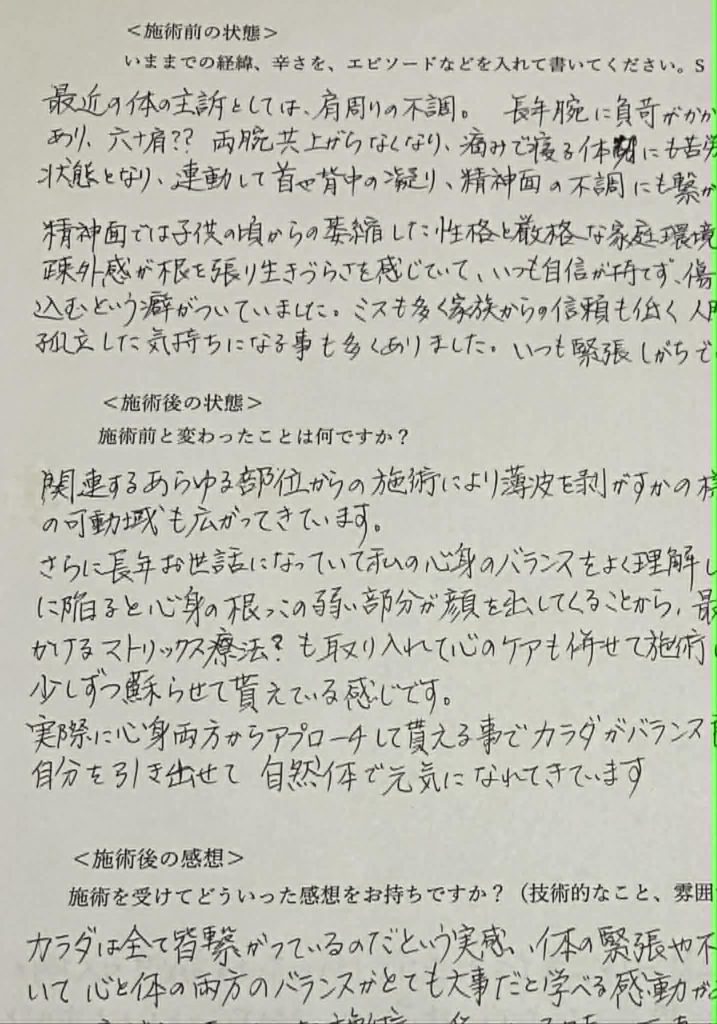 ＜施術前の状態＞
いままでの経緯、辛さを、エピソードなどを入れて書いてください。S
最近の体の主訴としては、肩周りの不調。 長年腕に負荷がかか
あり、六十肩?? 両腕共上がらなくなり、痛みで寝る体勢にも苦労
状態となり、連動して首や背中の凝り、精神面の不調にも繋が
精神面では子供の頃からの萎縮した性格と厳格な家庭環境
疎外感が根を張り生きづらさを感じていて、いつも自信が持てず、傷
込むという癖がついていました。ミスも多く家族からの信頼も低く 人間
孤立した気持ちになる事も多くありました。いつも緊張しがちで
＜施術後の状態＞
施術前と変わったことは何ですか？
関連するあらゆる部位からの施術により薄皮を剥がすかの様
の可動域も広がってきています。
さらに長年お世話になっていて私の心身のバランスをよく理解し
に陥ると心身の根っこの弱い部分が顔を出してくることから、最
かけるマトリックス療法？も取り入れて心のケアも併せて施術
少しずつ蘇らせて貰えている感じです。
実際に心身両方からアプローチして貰える事でカラダがバランス
自分を引き出せて 自然体で元気になれてきています
＜施術後の感想＞
施術を受けてどういった感想をお持ちですか？（技術的なこと、雰囲
カラダは全て皆繋がっているのだという実感、体の緊張や不
いて 心と体の両方のバランスがとても大事だと学べる感動が